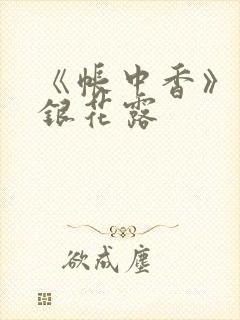 《帐中香》
银花露
欲成尘